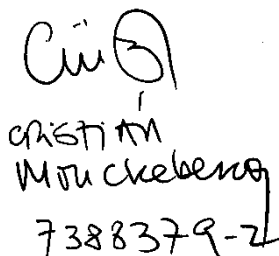 CRISTIÁN
Monckeberg
7388379-2